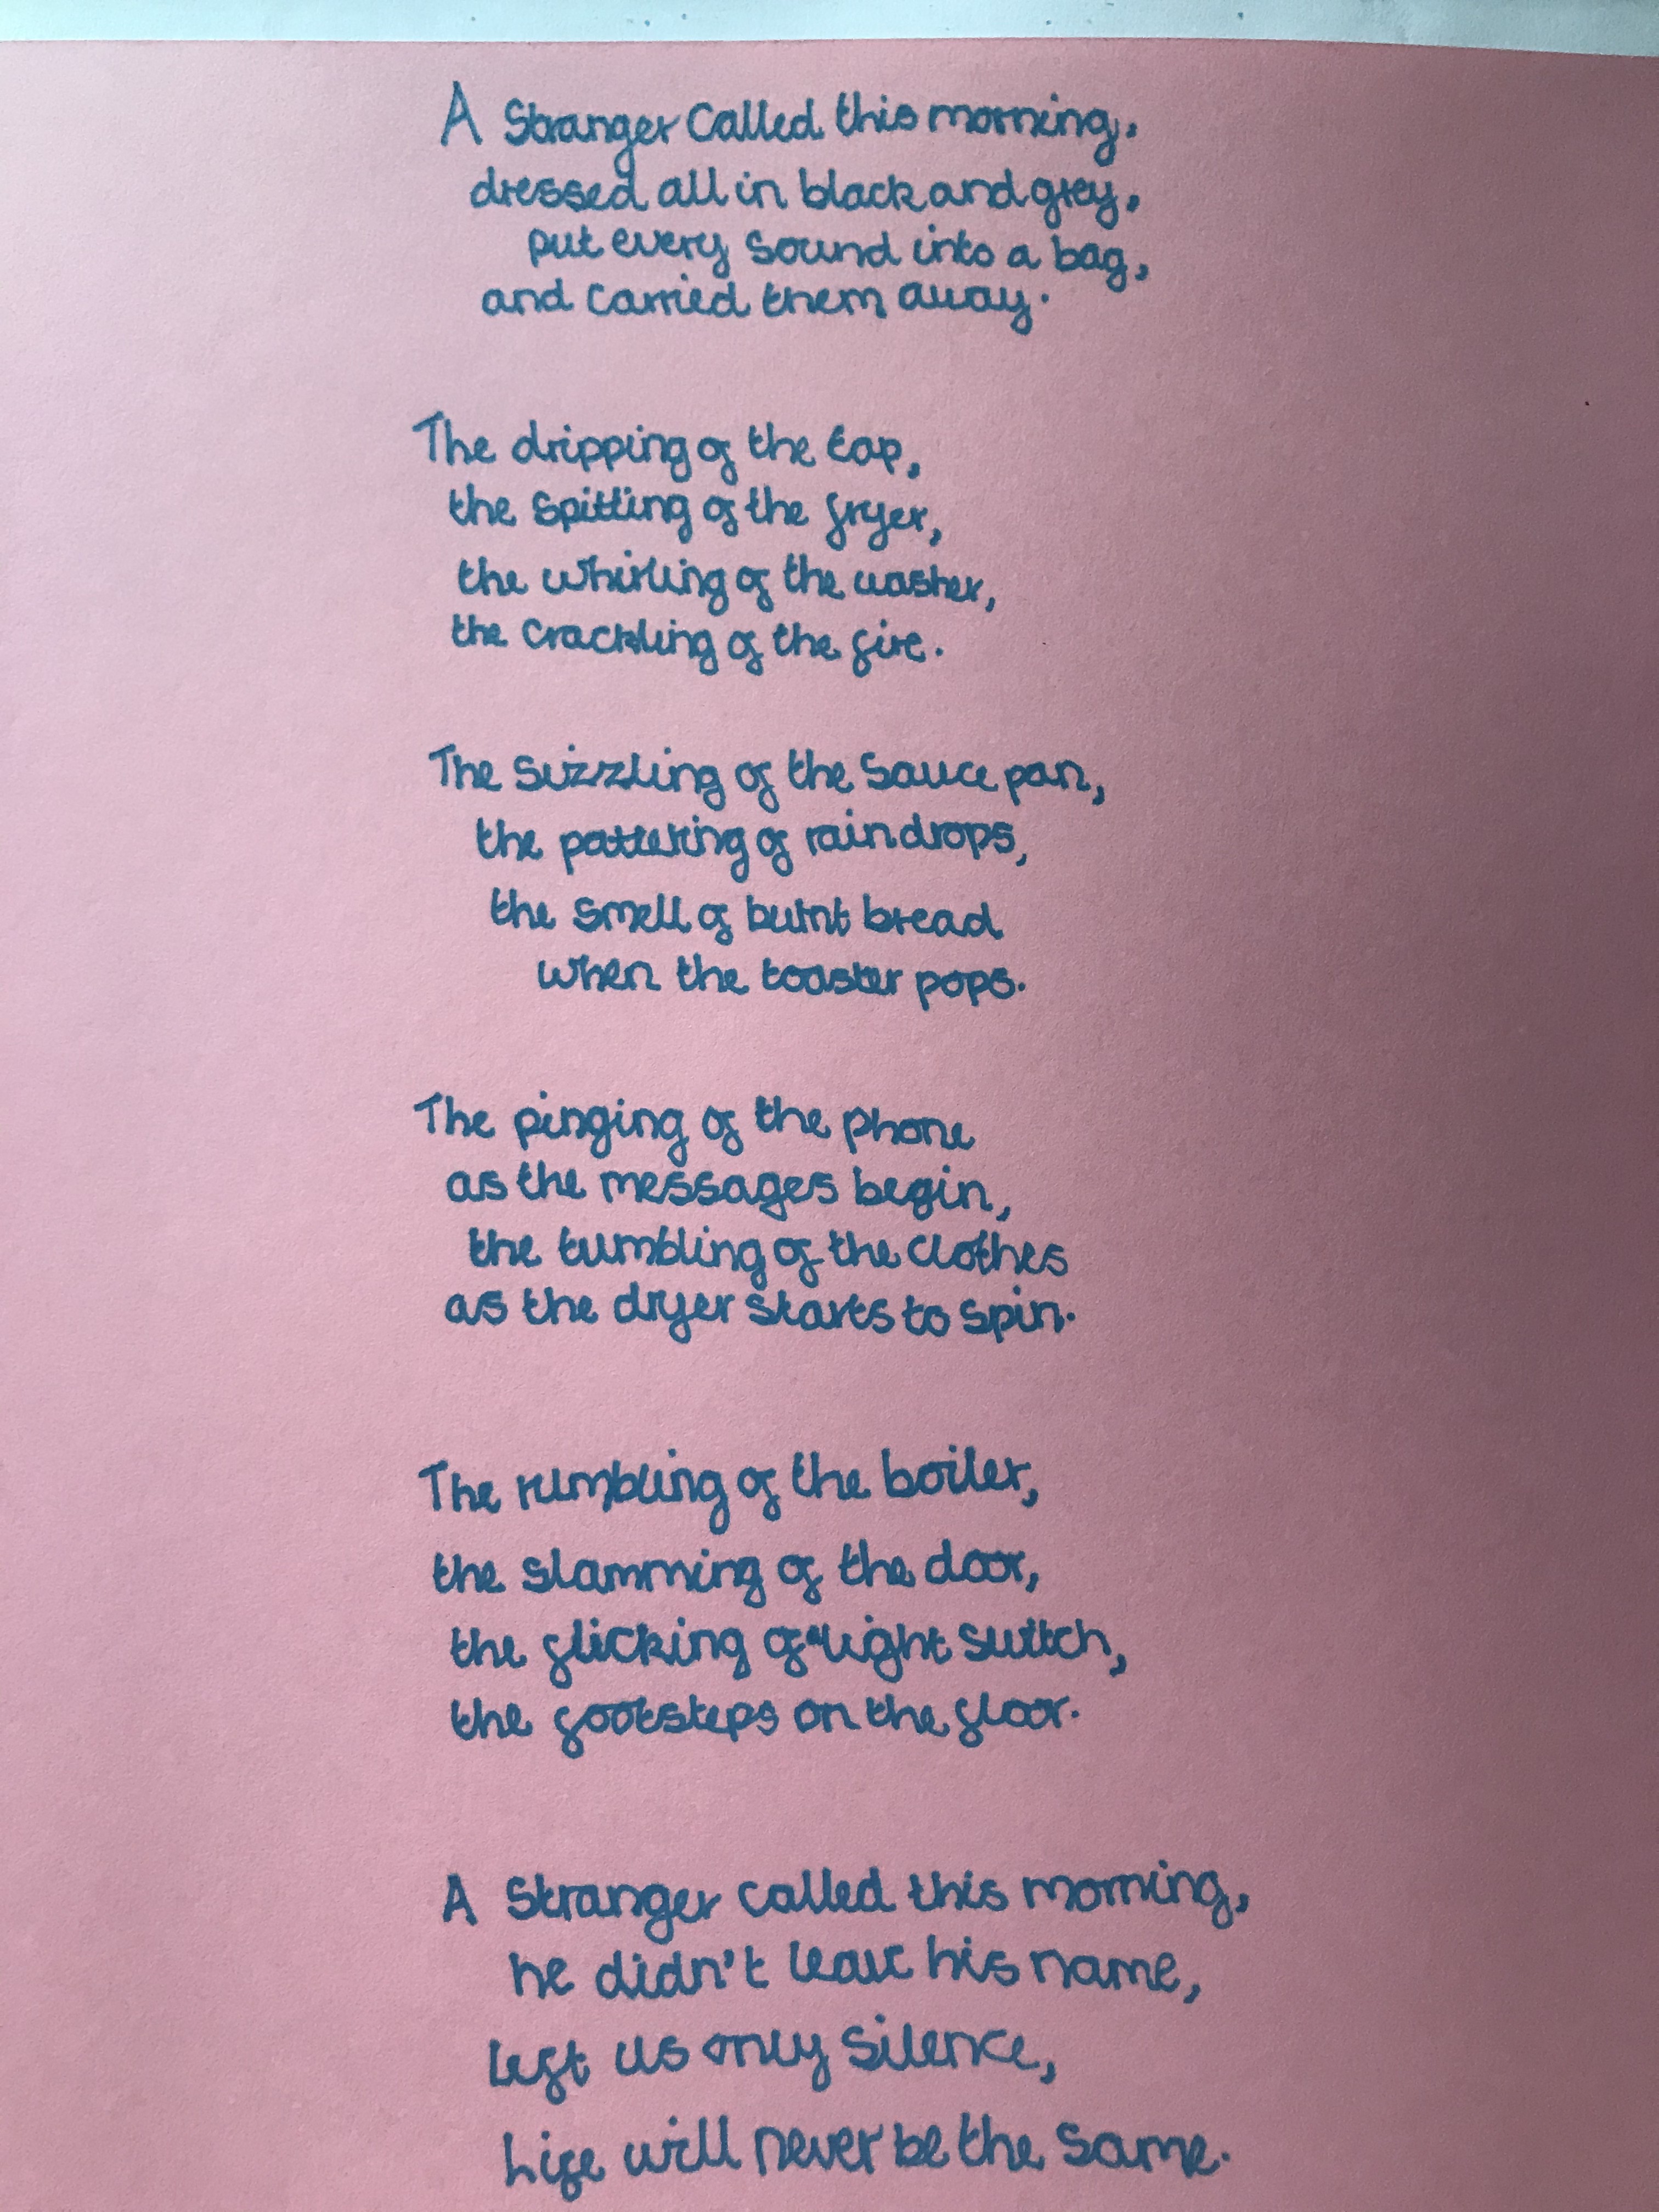 A Stranger Called this morning,
dressed all in black and grey,
put every sound into a bag,
and carried them away.
The dripping of the tap,
the spitting of the fryer,
the whirling of the washer,
the crackling of the fire.
The sizzling of the sauce pan,
the pattering of raindrops,
the smell of burnt bread
when the toaster pops.
The pinging of the phone
as the messages begin,
the tumbling of the clothes
as the dryer starts to spin.
The rumbling of the boiler,
the slamming of the door,
the flicking of a light switch,
the footsteps on the floor.
A Stranger called this morning,
he didn't leave his name,
left us only silence,
Life will never be the same.